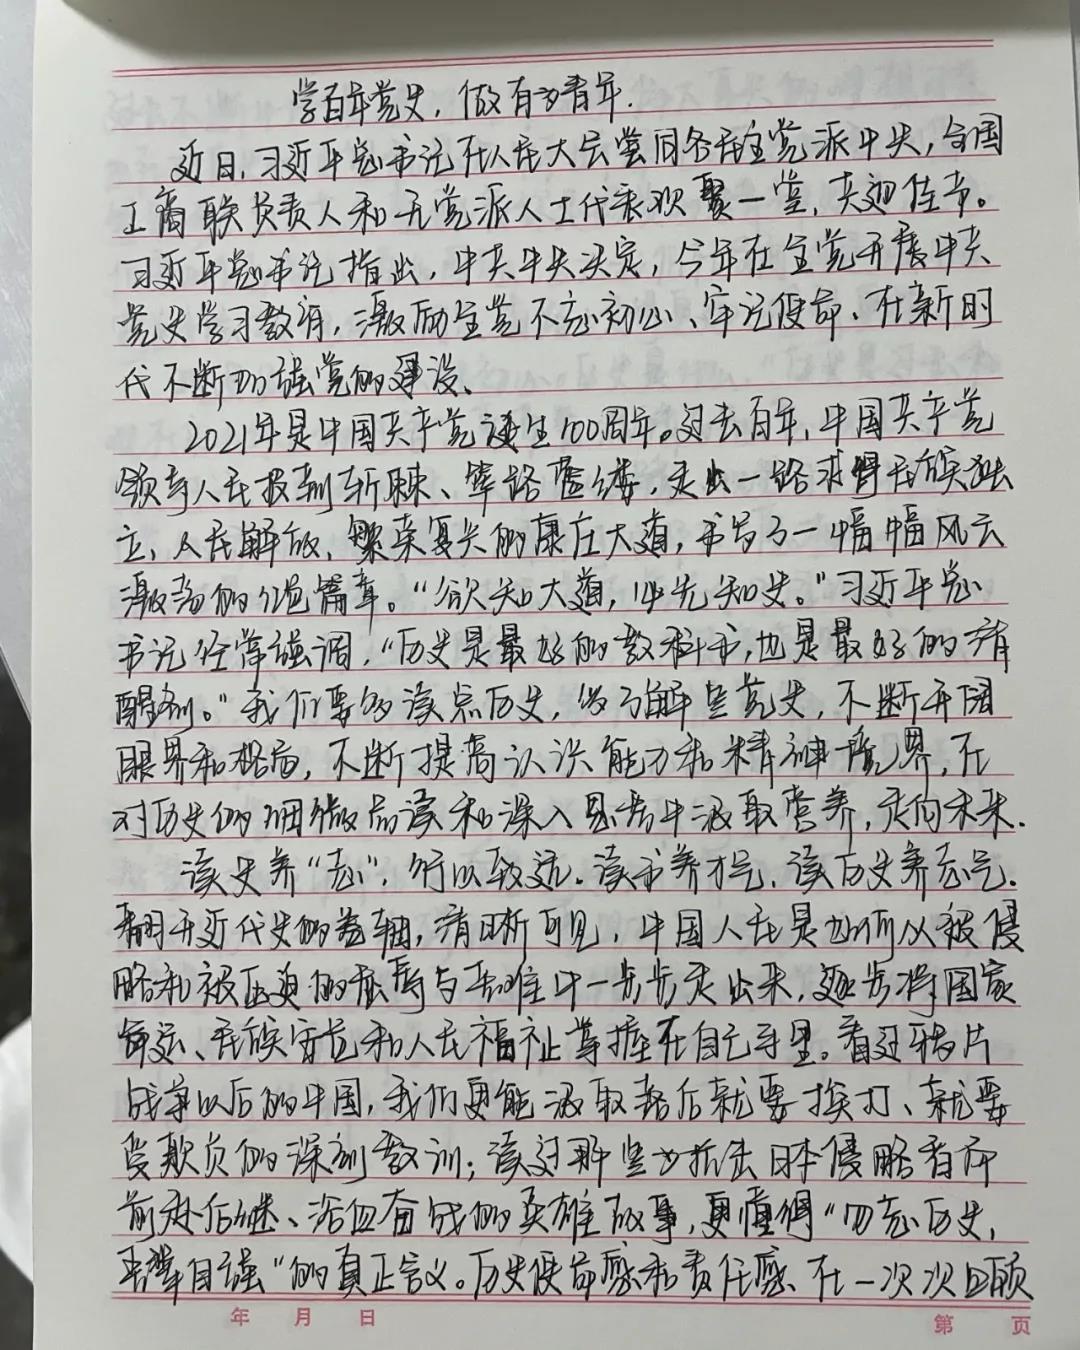 学百年党史，做有为青年.
近日，习近平总书记在人民大会堂同各民主党派中央，全国
工商联负责人和无党派人士代表欢聚一堂，共迎佳节。
习近平总书记指出，中共中央决定，今年在全党开展中共
党史学习教育，激励全党不忘初心、牢记使命、在新时
代不断加强党的建设、
2021年是中国共产党诞生100周年。过去百年，中国共产党
领导人民披荆斩棘、筚路蓝缕，走出一路求得民族独
立、人民解放、繁荣复兴的康庄大道，书写了一幅幅风云
激荡的篇章。“欲知大道，必先知史。”习近平总
书记经常强调，“历史是最好的教科书，也是最好的清
醒剂。”我们要多读点历史，多了解些党史，不断开阔
眼界和格局，不断提高认识能力和精神境界，在
对历史的细微品读和深入思考中汲取营养，走向未来.
读史养“志”，行以致远。读书养才气，读历史养志气.
翻开近代史的卷轴，清晰可见，中国人民是如何从被侵
略和被压迫的屈辱与苦难中一步步走出来，逐步将国家
命运、民族守范和人民福祉掌握在自己手里。看过鸦片
战争以后的中国，我们更能汲取落后就要挨打、就要
受欺负的深刻教训；读过那些为抗击日本侵略者而
前赴后继、浴血奋战的英雄故事，更懂得“勿忘历史，
吾辈自强”的真正含义。历史使命感和责任感在一次次回顾
年 月 日
第 页